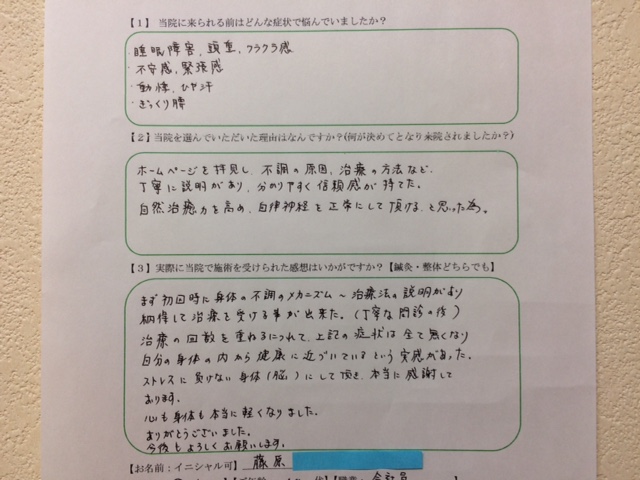 【1】 当院に来られる前はどんな症状で悩んでいましたか？
・睡眠障害、頭重、フラフラ感
・不安感、緊張感
・動悸、ひや汗
・ぎっくり腰
【2】当院を選んでいただいた理由はなんですか？(何が決めてとなり来院されましたか？)
ホームページを拝見し、不調の原因、治療の方法など、
丁寧に説明があり、分かりやすく信頼感が持てた。
自然治癒力を高め、自律神経を正常にして頂ける、と思った為。
【3】実際に当院で施術を受けられた感想はいかがですか？【鍼灸・整体どちらでも】
まず初回時に身体の不調のメカニズム～治療法の説明があり
納得して治療を受ける事が出来た。（丁寧な問診の後）
治療の回数を重ねるにつれて、上記の症状は全て無くなり
自分の身体の内から健康に近づいているという実感があった。
ストレスに負けない身体（脳）にして頂き、本当に感謝して
おります。
心も身体も本当に軽くなりました。
ありがとうございました。
今後もよろしくお願いします。
【お名前：イニシャル可】 藤原